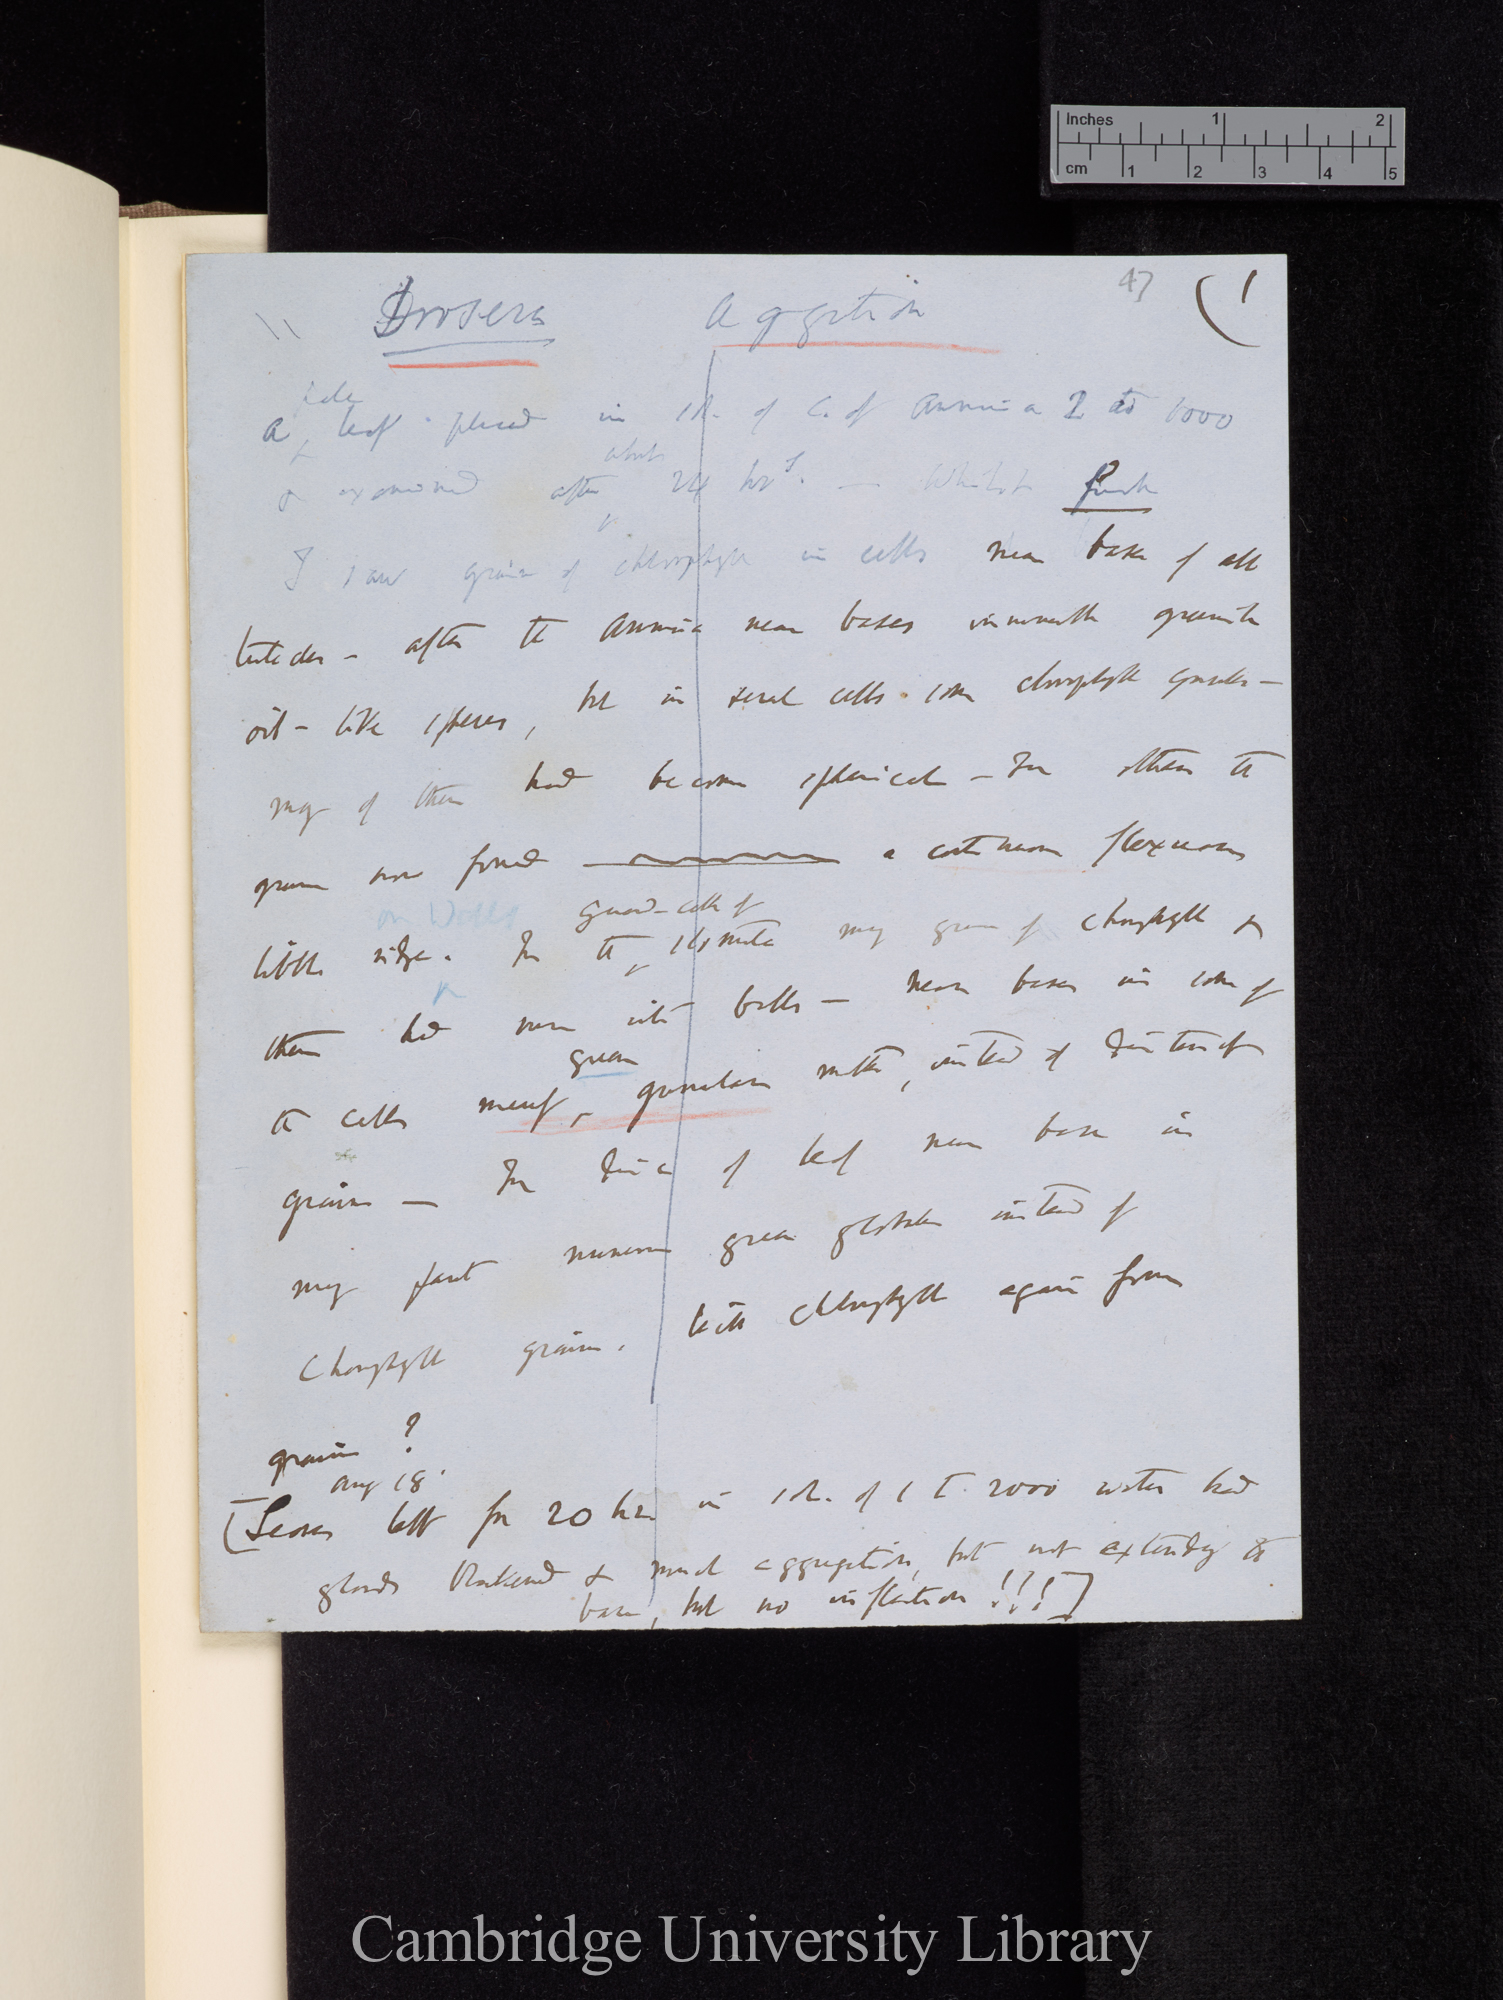 Inches 1 2
cm 1 2 3 4 5
47 (1
Drosera Aggtion
pale
A leaf placed in sol. of C. of Ammonia 2 to 1000
about
& examined after 24 hrs. — Whilst fresh
I saw grains of chlorophyll in cells near base of all
tentacles — after the Ammonia near bases innumerable greenish
oil-like spheres, but in several cells some chlorophyll granules —
many of them had become spherical — In others the
grains now formed a continuous flexuous
on Walls guard-cells of
little ridge. In the stomata many grains of chlorophyll &
them had run into balls — near bases in some of
green
the cells merely granular matter, instead of distinct
grains — In disc of leaf near base in
many parts numerous green globules instead of
Chlorophyll grains. Will chlorophyll again form
grains?
Aug 18.
[Leaves left for 20 hrs. in sol. of 1 to 2000 water had
glands blackened & much aggregation, but not extending to
base, but no inflection !!!]
Cambridge University Library